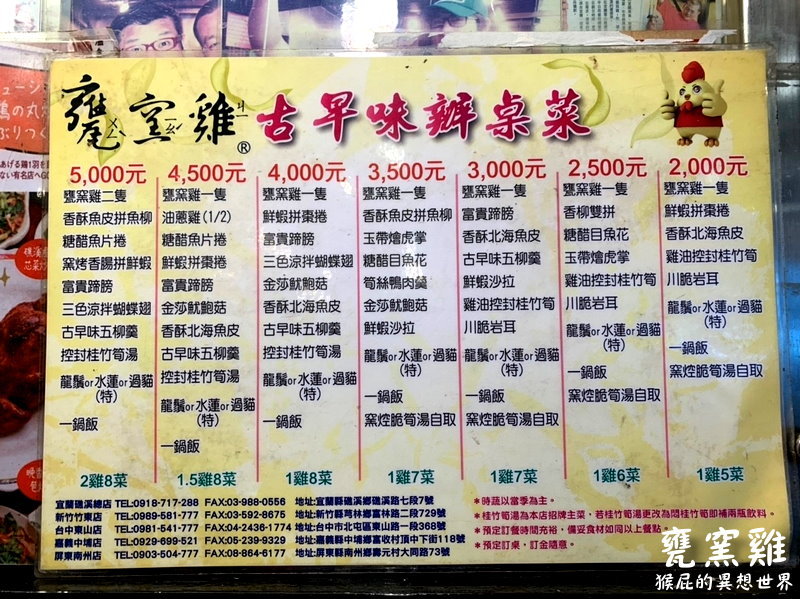 甕窯雞® 古早味辦桌菜
5,000元
甕窯雞二隻
香酥魚皮拼魚柳
糖醋魚片捲
窯烤香腸拼鮮蝦
富貴蹄膀
三色涼拌蝴蝶翅
古早味五柳羹
控封桂竹筍湯
龍鬚or水蓮or過貓
(特)
一鍋飯
2雞8菜
4,500元
甕窯雞一隻
油蔥雞(1/2)
糖醋魚片捲
鮮蝦拼棗捲
富貴蹄膀
金莎魷鮑菇
香酥北海魚皮
古早味五柳羹
控封桂竹筍湯
龍鬚or水蓮or過貓
(特)
一鍋飯
1.5雞8菜
4,000元
甕窯雞一隻
鮮蝦拼棗捲
富貴蹄膀
三色涼拌蝴蝶翅
金莎魷鮑菇
香酥北海魚皮
古早味五柳羹
控封桂竹筍湯
龍鬚or水蓮or過貓
(特)
一鍋飯
1雞8菜
3,500元
甕窯雞一隻
香酥魚皮拼魚柳
玉帶燴虎掌
糖醋目魚花
筍絲鴨肉羹
金莎魷鮑菇
鮮蝦沙拉
龍鬚or水蓮or過貓
(特)
一鍋飯
窯焢脆筍湯自取
1雞7菜
3,000元
甕窯雞一隻
富貴蹄膀
香酥北海魚皮
古早味五柳羹
鮮蝦沙拉
雞油控封桂竹筍
川脆岩耳
龍鬚or水蓮or過貓
(特)
一鍋飯
窯焢脆筍湯自取
1雞7菜
2,500元
甕窯雞一隻
香柳雙拼
糖醋目魚花
玉帶燴虎掌
雞油控封桂竹筍
川脆岩耳
龍鬚or水蓮or過貓
(特)
一鍋飯
窯焢脆筍湯自取
1雞6菜
2,000元
甕窯雞一隻
鮮蝦拼棗捲
香酥北海魚皮
雞油控封桂竹筍
川脆岩耳
龍鬚or水蓮or過貓
(特)
一鍋飯
窯焢脆筍湯自取
1雞5菜
宜蘭礁溪總店 TEL:0918-717-288 FAX:03-988-0556 地址:宜蘭縣礁溪鄉礁溪路七段7號
新竹竹東店 TEL:0989-581-777 FAX:03-592-8675 地址:新竹縣芎林鄉富林路二段729號
台中東山店 TEL:0981-541-777 FAX:04-2436-1774 地址:台中市北屯區東山路一段368號
嘉義中埔店 TEL:0929-699-521 FAX:05-239-9329 地址:嘉義縣中埔鄉富收村頂中下街118號
屏東南州店 TEL:0903-504-777 FAX:08-864-6177 地址:屏東縣南州鄉壽元村大同路73號
*時蔬以當季為主。
*桂竹筍湯為本店招牌主菜，若桂竹筍湯更改為悶桂竹筍即補兩瓶飲料。
*預定訂餐時間充裕，備妥食材如同以上餐點。
*預定訂桌，訂金隨意。
甕窯雞
猴屁的異想世界